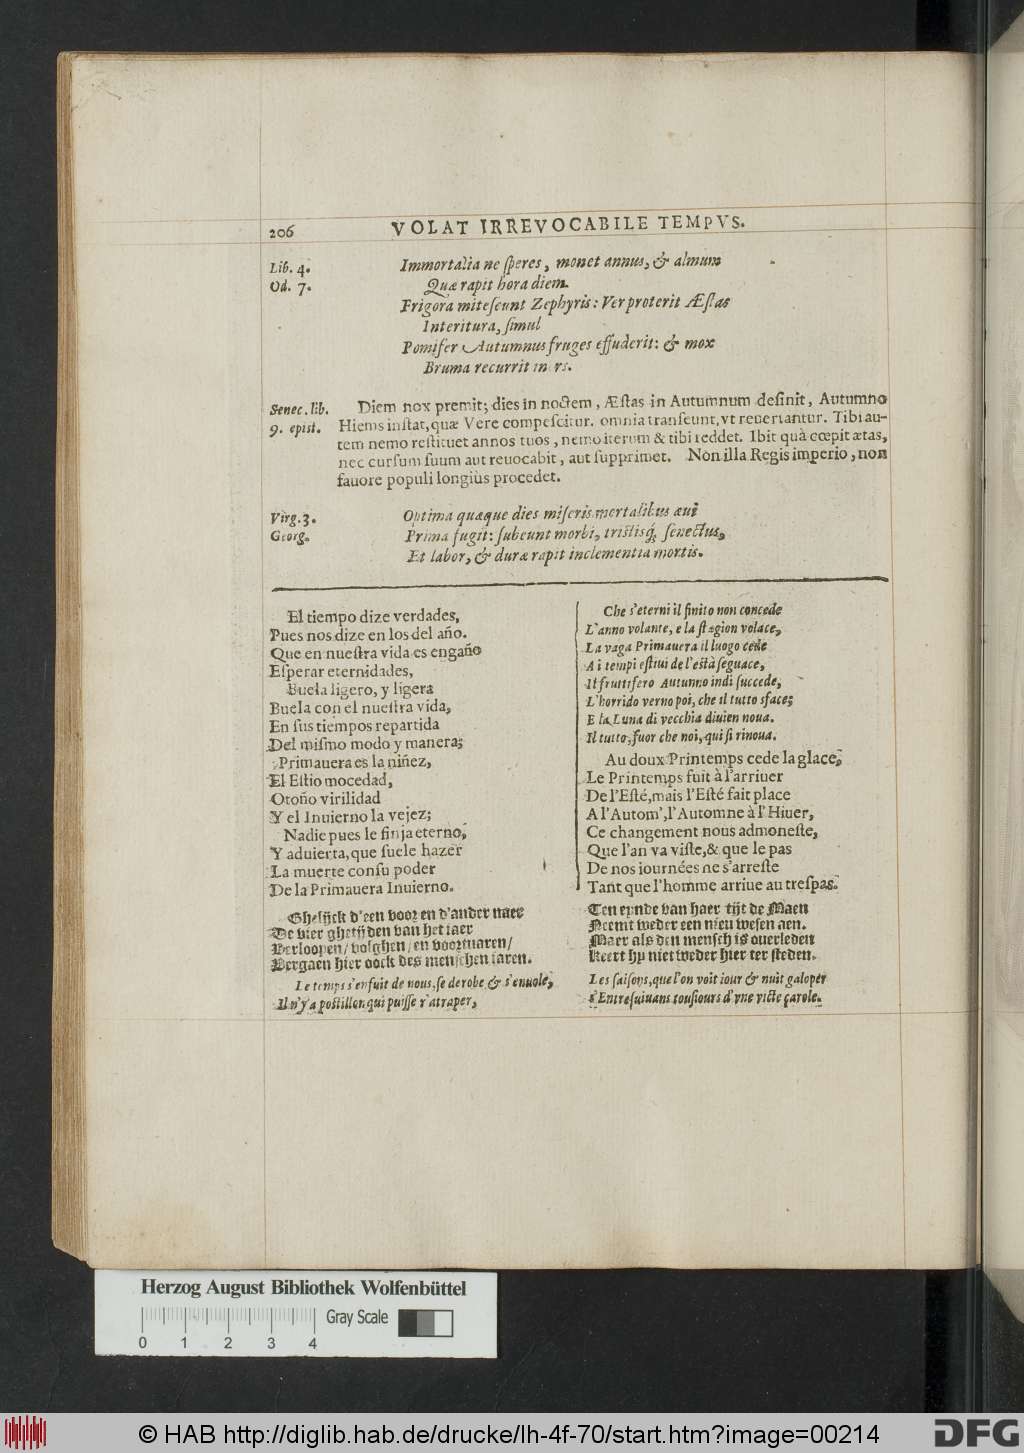 206
VOLAT IRREVOCABILE TEMPVS.
Lib. 4.
Od. 7.
Immortalia ne ſperes, monet annus, & almum
Quæ rapit hora diem.
Frigora miteſcunt Zephyris: Ver proterit Æſtas
Interitura, ſimul
Pomifer Autumnus fruges effuderit: & mox
Bruma recurrit iners.
Senec. lib.
9. epiſt.
Diem nox premit; dies in noctem, Æſtas in Autumnum deſinit, Autumno
Hiems inſtat, quæ Vere compeſcitur. omnia tranſeunt, vt reuertantur. Tibi au-
tem nemo reſtituet annos tuos, nemo iterum & tibi reddet. Ibit quà cœpit ætas,
nec curſum ſuum aut reuocabit, aut ſupprimet. Non illa Regis imperio, non
fauore populi longiùs procedet.
Virg. 3.
Georg.
Optima quæque dies miſeris mortalibus æui
Prima fugit: ſubeunt morbi, triſtisq́; ſenectus,
Et labor, & duræ rapit inclementia mortis.
El tiempo dize verdades,
Pues nos dize en los del año.
Que en nueſtra vida es engaño
Eſperar eternidades,
Buela ligero, y ligera
Buela con el nueſtra vida,
En ſus tiempos repartida
Del miſmo modo y manera;
Primauera es la niñez,
El Eſtio mocedad,
Otoño virilidad
Y el Inuierno la vejez;
Nadie pues ſe finja eterno,
Y aduierta, que ſuele hazer
La muerte con ſu poder
De la Primauera Inuierno.
Ghelijck d'een voor en d'ander naer
De vier ghetijden van het iaer
Verloopen/ volghen/ en voortuaren/
Vergaen hier oock des menſchen iaren.
Le temps s'enfuit de nous, ſe derobe & s'enuole,
Il n'y a poſtillon qui puiſſe r'atraper,
Che s'eterni il finito non concede
L'anno volante, e la ſtagion volace,
La vaga Primauera il luogo cede
A i tempi eſtiui de l'eſtà ſeguace,
Il fruttifero Autunno indi ſuccede,
L'horrido verno poi, che il tutto sface;
E la Luna di vecchia diuien noua.
Il tutto, fuor che noi, qui ſi rinoua.
Au doux Printemps cede la glace,
Le Printemps fuit à l'arriuer
De l'Eſté, mais l'Eſté fait place
A l'Autom', l'Automne à l'Hiuer,
Ce changement nous admoneſte,
Que l'an va viſte, & que le pas
De nos iournées ne s'arreſte
Tant que l'homme arriue au treſpas.
Ten eynde van haer tijt de Maen
Neemt weder een nieu weſen aen.
Maer als den menſch is ouerleden
Keert hy niet weder hier ter ſteden.
Les ſaiſons, que l'on voit iour & nuit galoper
s'Entreſuiuans touſiours d'vne viſte carole.
Herzog August Bibliothek Wolfenbüttel
Gray Scale
0 1 2 3 4
© HAB http://diglib.hab.de/drucke/lh-4f-70/start.htm?image=00214
DFG